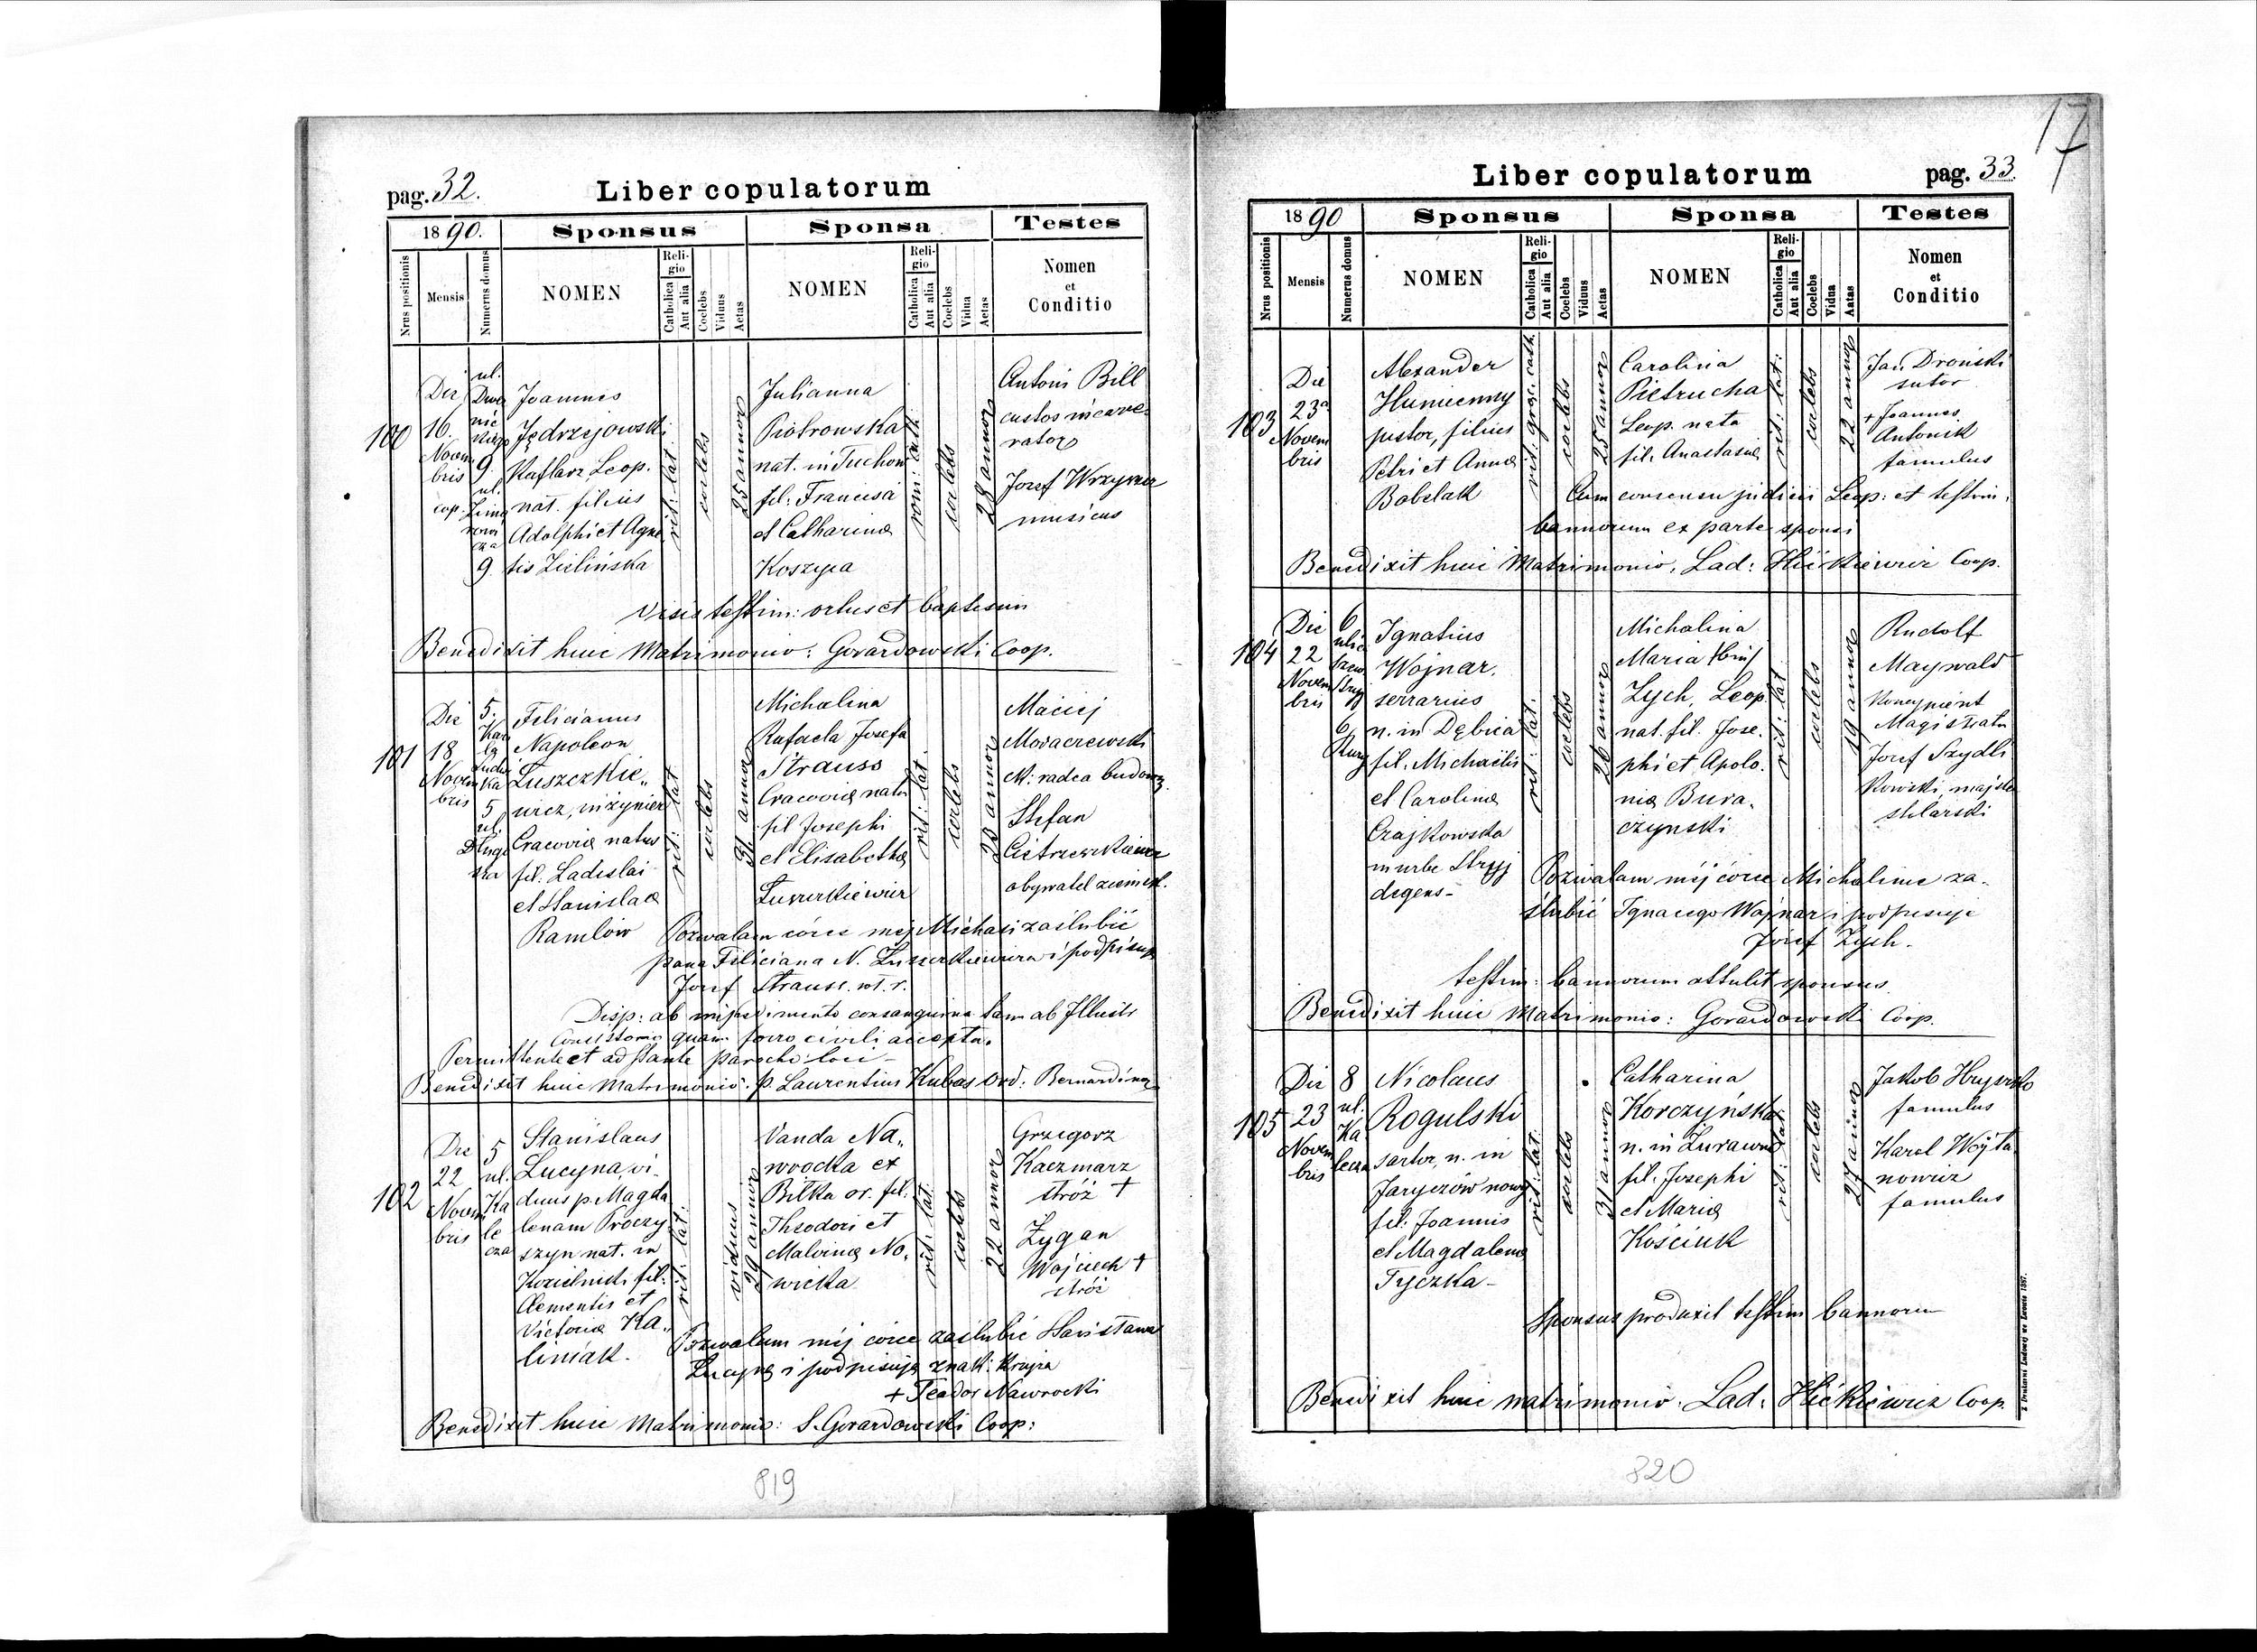 17
pag. 32.
Liber copulatorum
1890.
Sponsus
Sponsa
Testes
Nrus positionis
Mensis
Numerus domus
NOMEN
Religio
Catholica
Aut alia
Coelebs
Viduus
Aetas
NOMEN
Religio
Catholica
Aut alia
Coelebs
Vidua
Aetas
Nomen
et
Conditio
100
Die
16.
Novem
bris
cop.
ul.
9.
ul.
9.
Joannes
Jędrzejowski
Kaflarz Leop.
nat. filius
Adolphi et Agne
tis Zielińska
rit: lat
coelebs
25 annor
Julianna
Piotrowska
nat. in Tuchow
fil: Francisci
et Catharinæ
Koszyca
rom: cath:
coelebs
28 annor
Antoni Bill
custos incarce-
rator
Josef
musicus
visis testim: ortus et baptismi
Benedixit huic Matrimonio: Gorardowski Coop.
101
Die
18
Novem
bris
5.
Ka
5
ul.
Felicianus
Napoleon
Łuszczkie„
wicz, inżynier
Cracoviæ natus
fil: Ladislai
et Stanislaæ
Ramlów
rit: lat
coelebs
31 annor
Michalina
Rafaela Josefa
Strauss
Cracoviæ nata
fil Josephi
et Elisabethæ
Łuszczkiewicz
rit: lat
coelebs
23 annor
Maciej
Moraczewski
ck: radca budown.
Stefan
Cietrzewkiewicz
obywatel ziemsk.
Pozwalam córce mej Michasi zaślubić
pana Feliciana N. Łuszczkiewicza i podpisuję
Josef Strauss. mt. r.
Disp: ab impedimento consanguin. tam ab Illustr
Consistorio quam foro civili accepta.
Permittente et adstante parocho loci -
Benedixit huic Matrimonio: p. Laurentius Kubas Ord: Bernardinor
102
Die
22
Novem
bris
5
ul.
Ka
le
cza
Stanislaus
Lucyna, vi-
duus p. Magda
lenam Proczy
szyn nat. in
Kozielnich fil:
Clementis et
Victoriæ Ka„
liniak.
rit: lat:
viduus
29 annor
Vanda Na„
wrocka ex
Bilka or. fil:
Theodori et
Malvinæ No„
wicka
rit: lat:
coelebs
22 annor
Grzegorz
Kaczmarz
stróż +
Zygan
Wojciech +
stróż
Pozwalam mej córce zaślubić Stanisława
Lucynę i podpisuję znak: Krzyża
+ Teador Nawrocki
Benedixit huic Matrimonio: S. Gorardowski Coop:
819
Liber copulatorum
pag. 33.
1890
Sponsus
Sponsa
Testes
Nrus positionis
Mensis
Numerus domus
NOMEN
Religio
Catholica
Aut alia
Coelebs
Viduus
Aetas
NOMEN
Religio
Catholica
Aut alia
Coelebs
Vidua
Aetas
Nomen
et
Conditio
103
Die
23a
Novem
bris
Alexander
Humienny
pistor, filius
Petri et Annæ
Bobelak
rit: græc. cath.
coelebs
25 annor
Carolina
Pietrucha
Leop. nata
fil. Anastasiæ
rit: lat:
coelebs
22 annor
Jan Droński
sutor
+ Joannes
Antonik
famulus
Cum consensu judicii Leop: et testim:
bannorum ex parte sponsi
Benedixit huic Matrimonio, Lad: Hićkiewicz Coop.
104
Die
22
Novem
bris
6
6
Ignatius
Wojnar.
serrarius
n. in Dębica
fil. Michaëlis
et Carolinæ
Czajkowska
in urbe Stryj
degens -
rit: lat.
coelebs
26 annor
Michalina
Maria
Zych, Leop.
nat. fil. Jose.
phi et Apolo.
niæ Bura„
czynski
rit: lat
coelebs
19 annor
Rudolf
Maywald
Koncypient
Magistratu
Josef Szydło
kowski, majster
stolarski
Pozwalam mej córce Michalinie za-
ślubić Ignacego Wojnar i podpisuje
Józef Zych.
testim: bannorum attulit sponsus.
Benedixit huic Matrimonio: Gorardowski Coop.
105
Die
23
Novem
bris
8
ul.
Ka
lecza
Nicolaus
Rogulski
sartor, n. in
Jaryczów nowy
fil: Joannis
et Magdalenæ
Tyczka -
rit: lat:
coelebs
31 annor
Catharina
Korczyńska
n. in Żurawno
fil. Josephi
et Mariæ
Kościuk
rit: lat:
coelebs
27 annor
Jakob Hryszko
famulus
Karol Wojta
nowicz
famulus
Sponsus produxit testim bannorum
Benedixit huic matrimonio. Lad: Hićkiewicz Coop.
Z Drukarni Ludowej we Lwowie 1887.
820